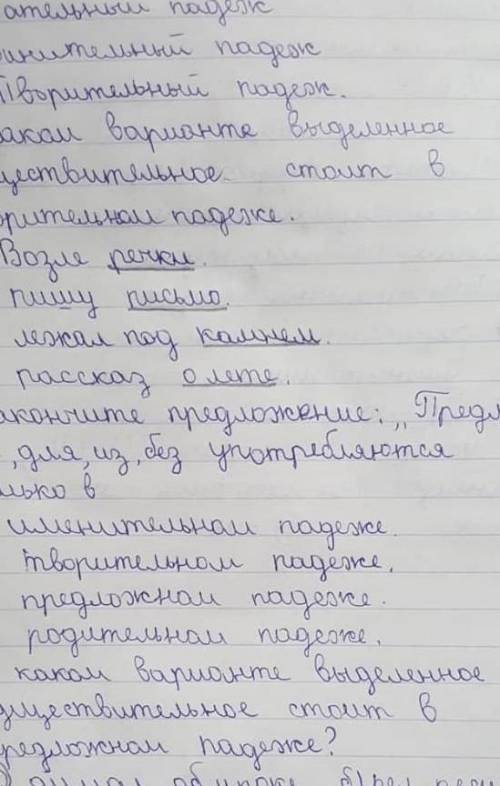 ательный падеж
нительный падеж
Творительный падеж.
каком варианте выделенное
ществительное стоит в
орительном падеже.
Возле речки.
пишу письмо.
лежал под камнем.
рассказ о лете.
акончите предложение: „Предл
, для, из, без употребляются
лько в
именительном падеже.
творительном падеже.
предложном падеже.
родительном падеже.
каком варианте выделенное
уществительное стоит в
редложном падеже?